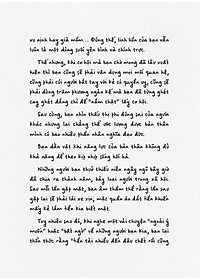 xu nịnh hay giả mồm... Đồng thế, linh hồn của bạn vẫn
luôn là một dòng suối yên bình và chính trực.
Thế nhưng, khi cơ hội mà bạn chờ mong đã lâu xuất
hiện thì bạn cũng sẽ phải vận dụng mọi mối quan hệ,
cũng phải cúi người bắt tay với kẻ có quyền uy, cũng sẽ
phải dùng trăm phương ngàn kế mà bạn đã từng ghét
cay ghét đắng chỉ để "nắm chặt" lấy cơ hội.
Sau cùng, bạn nhìn thấu thị phi đúng sai của người
khác nhưng lại chẳng thể ước lượng được bản thân
mình có bao nhiêu phần nhân nghĩa đạo đức.
Bạn dần vứt khi năng lực của bản thân không đủ
khả năng để theo kịp nhịp sống hối hả.
Những người bạn thuở thiếu niên ngây ngô bây giờ
đã chia ra thành năm, bảy loại người trong xã hội.
Sau mỗi lần gặp mặt, bạn âm thầm thề rằng lần sau
gặp lại sẽ phải lái xe xịn, mặc quần áo đắt tiền khiến
mấy kẻ lắm tiền kia biết mặt.
Tuy nhiên sau đó, khi nghe một vài chuyện "ngoài ý
muốn" hoặc "bất ngờ" về những người bạn kia, bạn lại
thổn thức rằng "tiền tài nhiều đến đâu chết rồi cũng